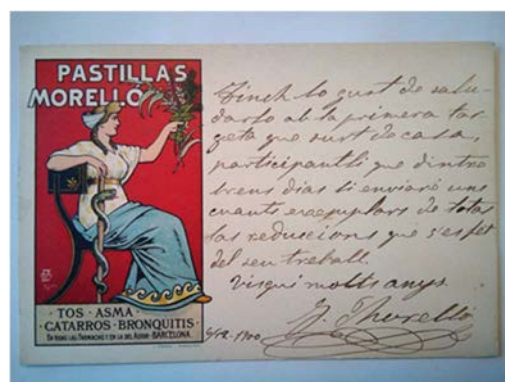 PASTILLAS
MORELLÓ
TOS · ASMA ·
CATARROS · BRONQUITIS ·
EN TODAS LAS FARMACIAS Y EN LA DEL AUTOR · BARCELONA
Tinch lo gust de salu-
darlo ab la primera tar-
geta que surt de casa,
participantli que dintre
breus dias li enviaré uns
cuants exemplars de totas
las reduccions que s'es fet
del seu treball.
Visqui molts anys.
1900